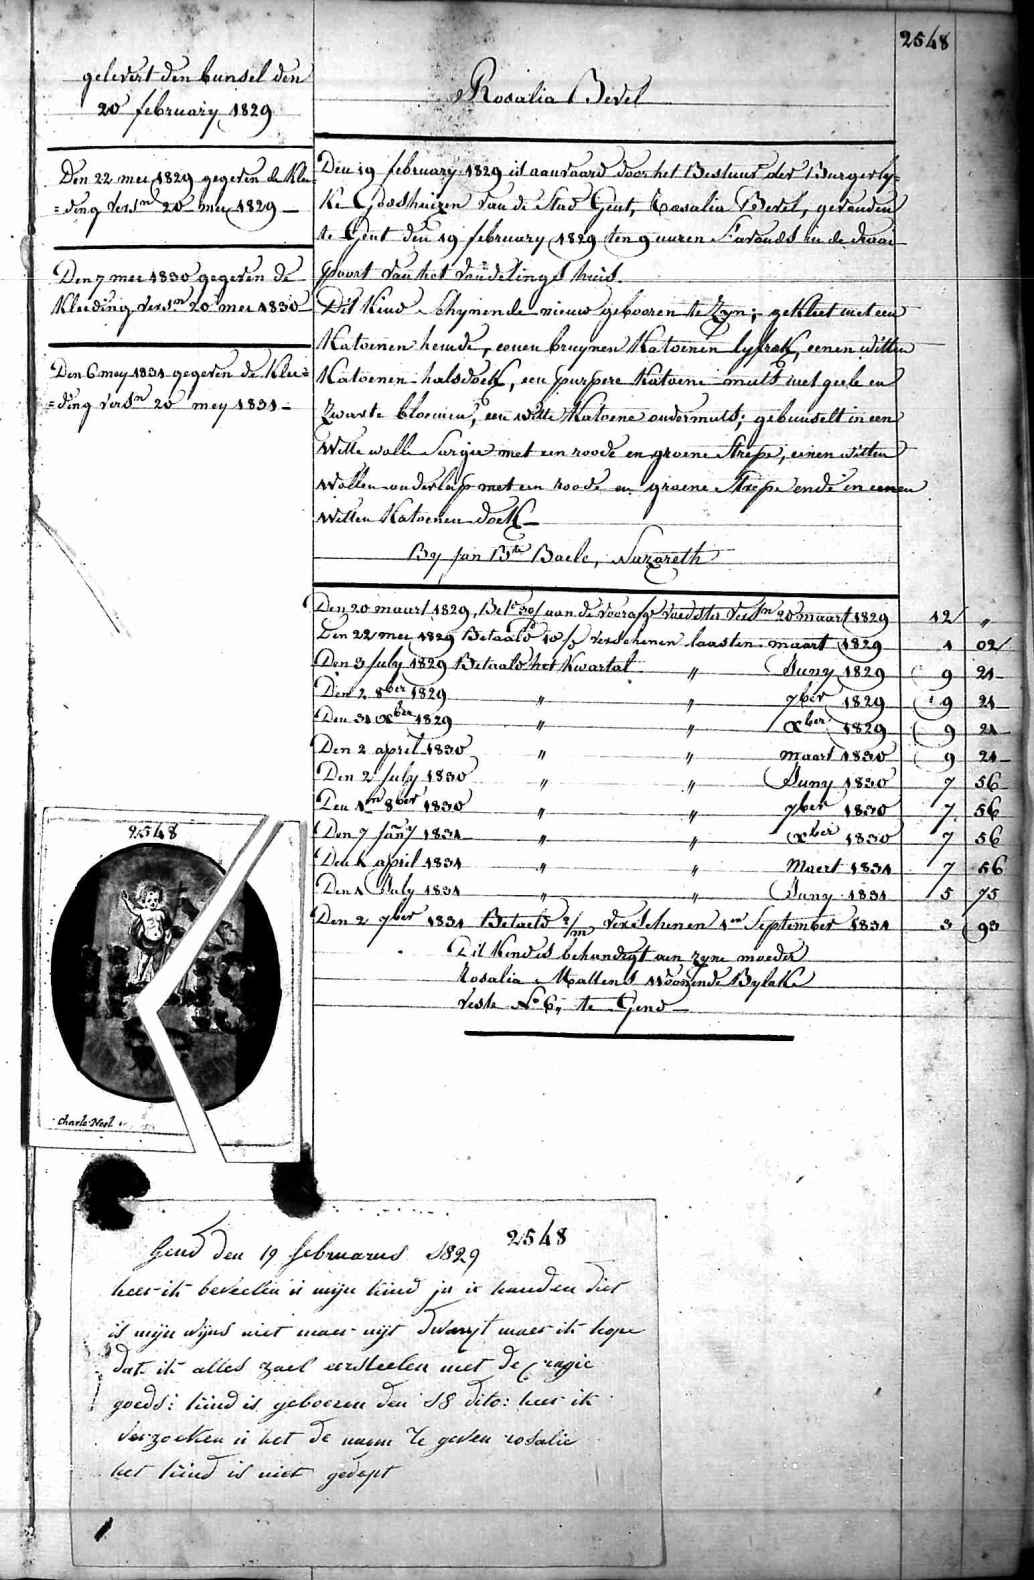 2548
gelevert den bunsel den
20 february 1829
Rosalia Bevel
Den 22 mei 1829 gegeven de klee=
=ding versn 20 mei 1829
Den 7 mei 1830 gegeven de
kleeding versn 20 mei 1830
Den 6 mey 1831 gegeven de klee=
=ding versn 20 mey 1831
Den 19 february 1829 is aanvaard door het Bestuur der Burgerly=
ke Godshuizen van de Stad Gent, Rosalia Bevel, gevonden
te Gent den 19 february 1829 ten 9 uuren s'avonds in de draai
poort van het vondelings huis.
Dit kind schynende nieuw gebooren te zyn; gekleet met een
katoenen hemde, eenen bruynen katoenen lyfrok, eenen witten
katoenen halsdoek, een purpere katoene muts met geele en
zwarte bloemen, een witte katoene ondermuts; gebunselt in een
witte wolle sargie met een roode en groene strepe, eenen witten
wollen onderlap met een roode en groene strepe ende in eenen
witten katoenen doek
By Jan Bte Baele, Nazareth
Den 20 maart 1829, Bete 30/ aan de voorafge voedster versn 20 maart 1829 12/ "
Den 22 mei 1829 Betaald verschenen laasten maart 1829 1 02/
Den 3 July 1829 Betaald het kwartal " Juny 1829 9 21
Den 2 8ber 1829 " " 7ber 1829 9 21
Den 31 xber 1829 " " xber 1829 9 21
Den 2 april 1830 " " maart 1830 9 21
Den 2 July 1830 " " Juny 1830 7 56
Den 1n 8ber 1830 " " 7ber 1830 7 56
Den 7 Jany 1831 " " xber 1830 7 56
Den april 1831 " " Maert 1831 7 56
Den 1 July 1831 " " Juny 1831 5 75
Den 2 7ber 1831 Betaeld 2/m verschenen 1en September 1831 3 93
Dit kind is behandigt aen zyne moeder
Rosalia Mattens woonende Byloke
veste No 6, te Gend
2548
Charle Neel
2548
Gend den 19 februarus 1829
heer ik beveelen u mijn kind in u handen dit
is mijn wijns niet maer nijt dwanyt maer ik hope
dat ik alles zael ersteelen met de
goeds: kind is geboeren den 18 dito: heer ik
verzoeken u het de naem te geven rosalie
het kind is niet gedept